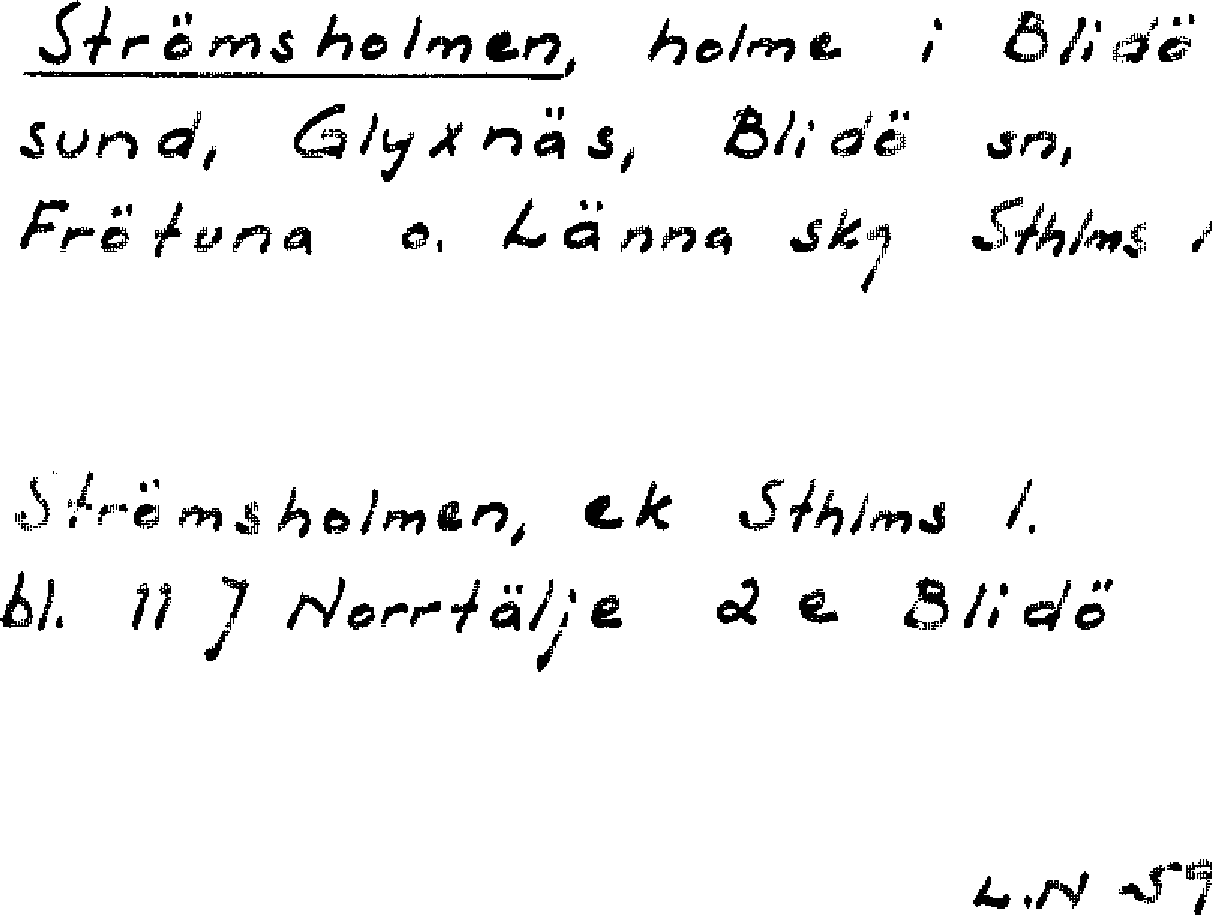 Strömsholmen, holme i Blidö
sund, Glyxnäs, Blidö sn,
Frötuna o. Länna skg Sthlms l
Strömsholmen, ek Sthlms l.
bl. 117 Norrtälje 2 e Blidö
L.N 57